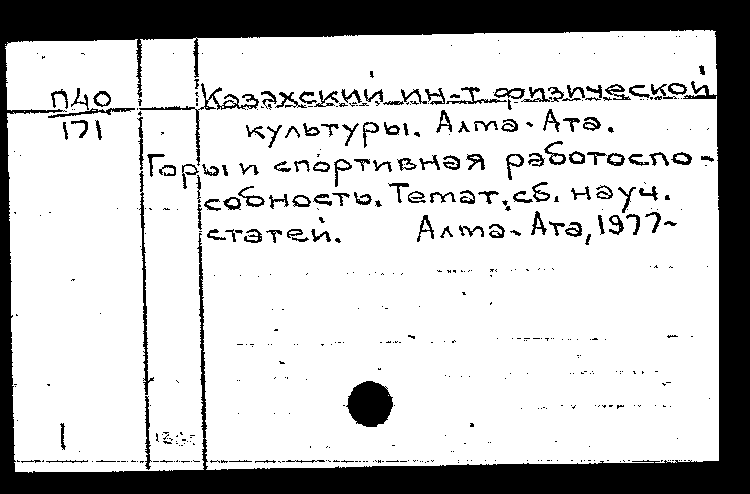 П40
171
Казахский ин-т физической
культуры. Алма-Ата.
Горы и спортивная работоспо-
собность. Темат. сб. науч.
статей. Алма-Ата, 1977-
1